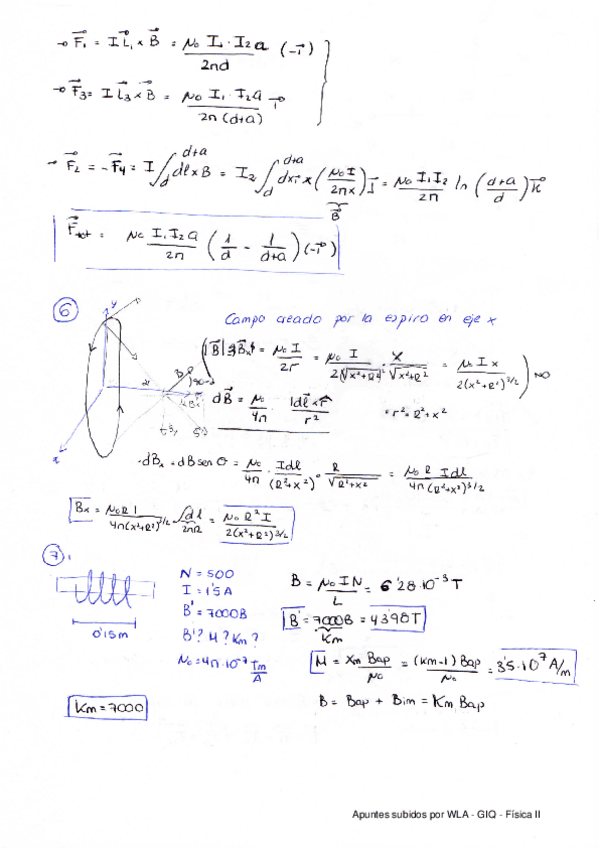 → F⃗₁ = I L⃗₁ × B⃗ = μ₀ I₁·I₂ a / 2πd (-i⃗)
→ F⃗₃ = I L⃗₃ × B⃗ = μ₀ I₁·I₂ a / 2π(d+a) i⃗
→ F⃗₂ = -F⃗₄ = I ∫_d^{d+a} dl × B = I₂ ∫_d^{d+a} dx i⃗ × (μ₀ I / 2πx) j⃗ = μ₀ I₁ I₂ / 2π ln (d+a / d) k⃗
B⃗
F⃗tot = μ₀ I₁ I₂ a / 2π (1/d - 1/d+a) (-i⃗)
6
y
Campo creado por la espira en eje x
= μ₀ I / 2r = μ₀ I / 2(√x²+R²) · x / √x²+R² = μ₀ I x / 2(x²+R²)^3/2 NO
dB⃗ = μ₀ / 4π |dl⃗ × r⃗| / r²
= r² = R² + x²
· dBₓ = dB sen θ = μ₀ / 4π · I dl / (R²+x²) · R / √R²+x² = μ₀ R I dl / 4π (R²+x²)^3/2
Bₓ = μ₀ R I / 4π(x²+R²)^3/2 ∫dl = μ₀ R² I / 2(x²+R²)^3/2
2πR
7.
0'15m
N = 500
I = 1'5A
B' = 7000B
B'? M? Km?
μ₀ = 4π·10⁻⁷ Tm/A
B = μ₀ I N / L = 6'28·10⁻³ T
B' = 7000B = 43'98T
Km
M = Xm Bap / μ₀ = (Km-1) Bap / μ₀ = 3'5·10⁷ A/m
Km = 7000
B = Bap + Bim = Km Bap
Apuntes subidos por WLA - GIQ - Física II